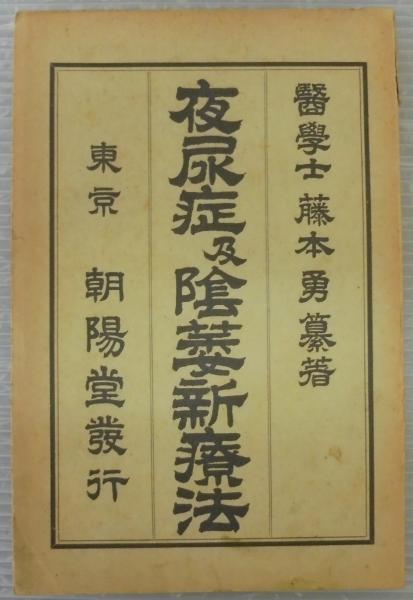 醫學士 藤本勇 纂著
夜尿症及陰萎新療法
東京 朝陽堂發行